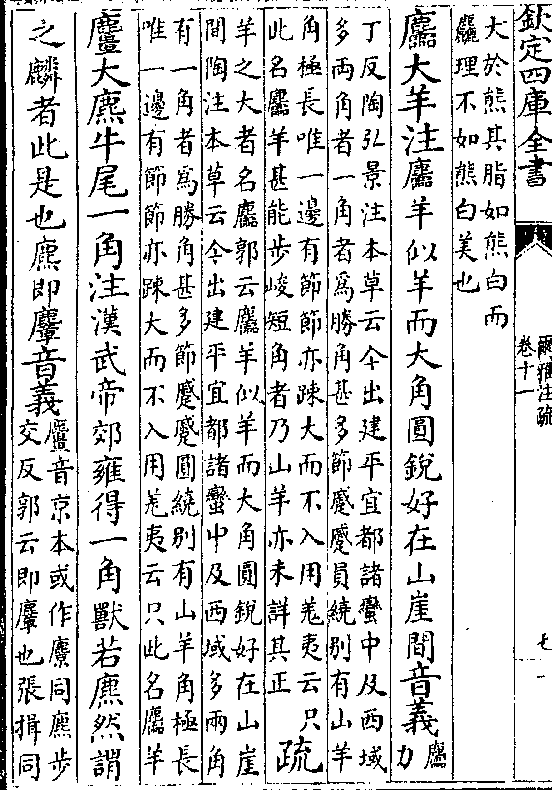 欽定四庫全書
爾雅注疏
卷十一
七
大於熊其脂如熊白而
麤理不如熊白美也
麢大羊注麢羊似羊而大角圓銳好在山崖間音義麢力
丁反陶弘景注本草云今出建平宜都諸蠻中及西域
多兩角者一角者為勝角甚多節蹙蹙員繞別有山羊
角極長唯一邊有節節亦踈大而不入用羌夷云只
此名麢羊甚能步峻短角者乃山羊亦未詳其正
疏
羊之大者名麢郭云麢羊似羊而大角圓銳好在山崖
間陶注本草云今出建平宜都諸蠻中及西域多兩角
有一角者為勝角甚多節蹙蹙圓繞別有山羊角極長
唯一邊有節節亦踈大而不入用羌夷云只此名麢羊
麠大麃牛尾一角注漢武帝郊雍得一角獸若麃然謂
之麟者此是也麃即麞音義
麠音京本或作麖同麃步
交反郭云即麞也張揖同